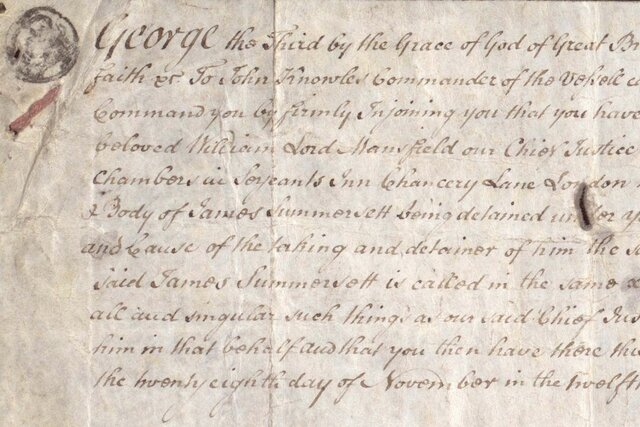 George the Third by the Grace of God of Great
faith &c To John Knowles Commander of the Vessell
Command you by firmly Injoining you that you have
beloved William Lord Mansfield our Chief Justice
Chambers in Serjeants Inn Chancery Lane London
& Body of James Summersett being detained under
and Cause of the taking and detainer of him the
said James Summersett is called in the same
all and singular such things as our said Chief
him in that behalf and that you then have there
the twenty eighth day of November in the twelfth